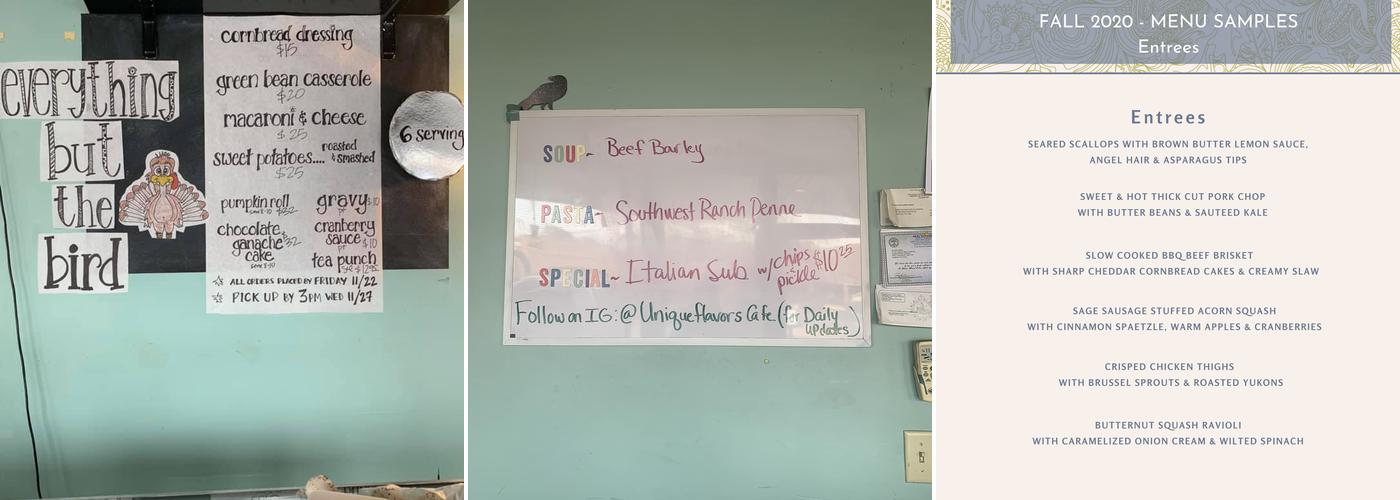 everything
but
the
bird
cornbread dressing
$15
green bean casserole
$20
macaroni & cheese
$25
sweet potatoes.... roasted & smashed
$25
pumpkin roll
gravy
chocolate
ganache $32
cake
cranberry
sauce $10
tea punch
ALL ORDERS PLACED BY FRIDAY 11/22
PICK UP BY 3PM WED 11/27
6 serving
SOUP~ Beef Barley
PASTA~ Southwest Ranch Penne
SPECIAL~ Italian Sub w/chips & pickle $10.25
Follow on IG: @Uniqueflavors Cafe (for Daily
updates)
FALL 2020 - MENU SAMPLES
Entrees
Entrees
SEARED SCALLOPS WITH BROWN BUTTER LEMON SAUCE,
ANGEL HAIR & ASPARAGUS TIPS
SWEET & HOT THICK CUT PORK CHOP
WITH BUTTER BEANS & SAUTEED KALE
SLOW COOKED BBQ BEEF BRISKET
WITH SHARP CHEDDAR CORNBREAD CAKES & CREAMY SLAW
SAGE SAUSAGE STUFFED ACORN SQUASH
WITH CINNAMON SPAETZLE, WARM APPLES & CRANBERRIES
CRISPED CHICKEN THIGHS
WITH BRUSSEL SPROUTS & ROASTED YUKONS
BUTTERNUT SQUASH RAVIOLI
WITH CARAMELIZED ONION CREAM & WILTED SPINACH